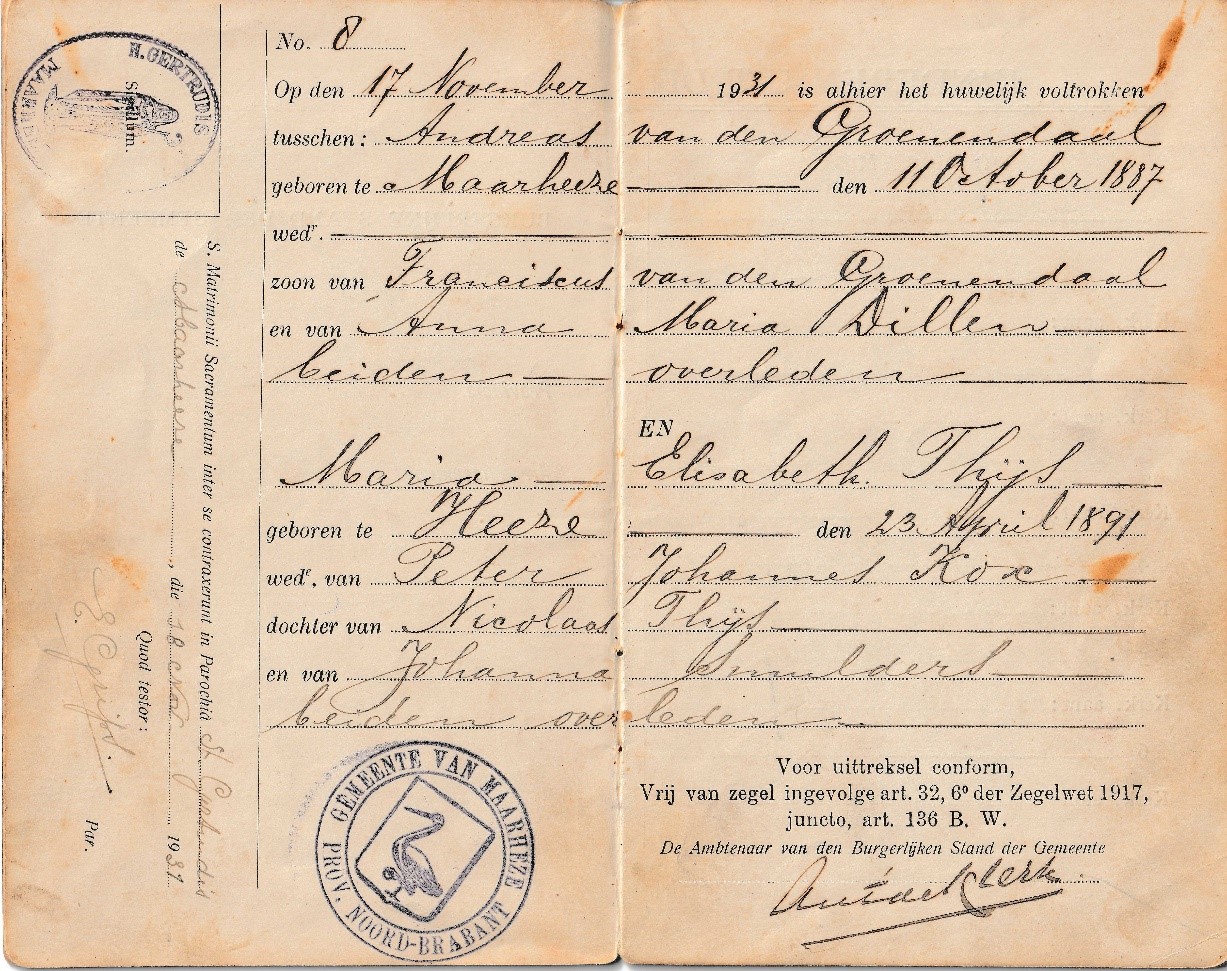 No. 8
Op den 17 November 1931 is alhier het huwelijk voltrokken
tusschen: Andreas van den Groenendaal
geboren te Maarheeze den 11 October 1887
wedʳ.
zoon van Franciscus van den Groenendaal
en van Anna Maria Dillen
beiden overleden
EN
Maria Elisabeth Thijs
geboren te Heeze den 23 April 1891
wedᵉ. van Peter Johannes Kox
dochter van Nicolaas Thijs
en van Johanna Smulders
beiden overleden
GEMEENTE VAN MAARHEZE
PROV. NOORD-BRABANT
Voor uittreksel conform,
Vrij van zegel ingevolge art. 32, 6º der Zegelwet 1917,
juncto, art. 136 B. W.
De Ambtenaar van den Burgerlijken Stand der Gemeente
H. GERTRUDIS
Sigillum.
S. Matrimonii Sacramentum inter se contraxerunt in Parochia St Gertrudis
de Maarheeze, die 18 Nov. 1931.
Quod testor:
P.
Par.